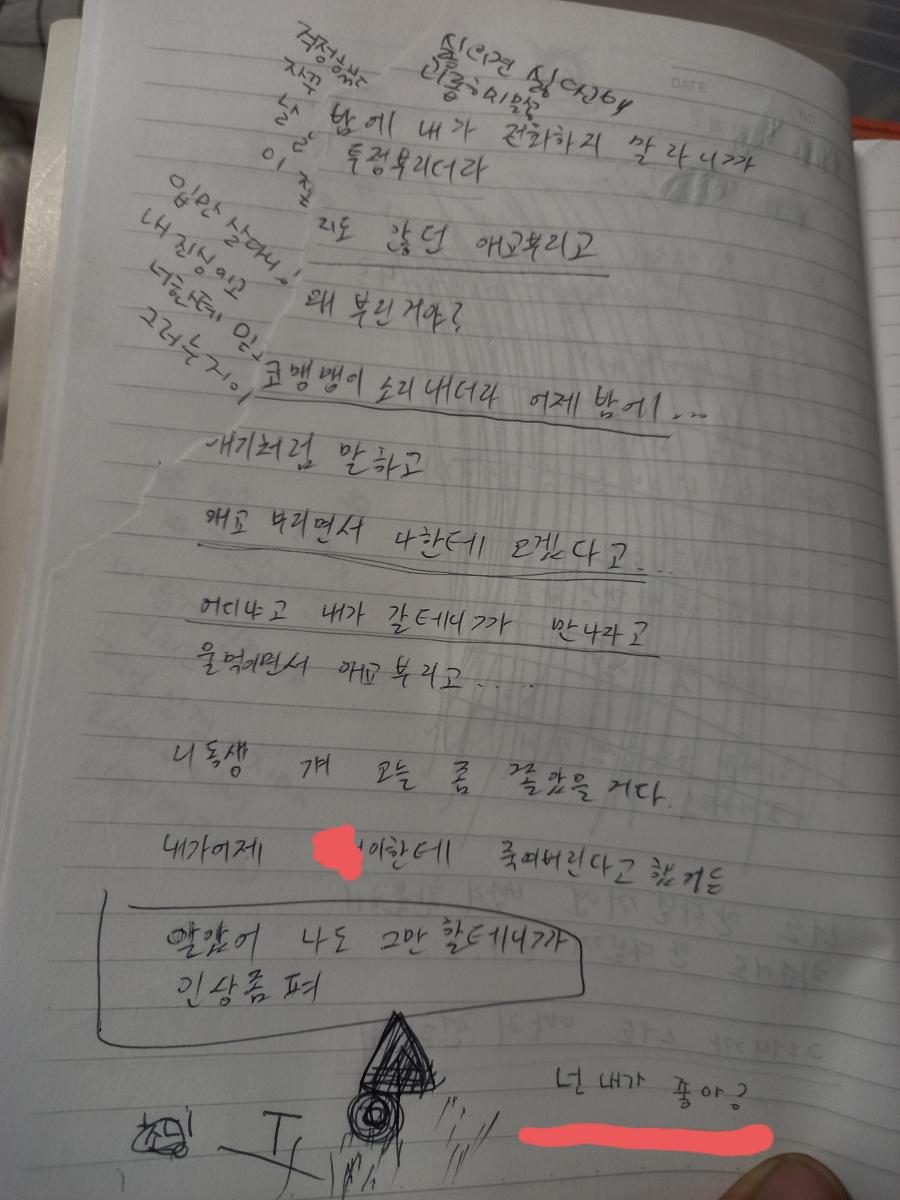 싫으면 싫다 해
밤에 내가 전화하지 말라니까
투정부리더라
리도 않던 애교부리고
왜 부린거야?
코맹맹이 소리내더라 어제 밤에...
애기처럼 말하고
애교 부리면서 나한테 오겠다고....
어디냐고 내가 갈테니까 만나라고
울먹이면서 애교부리고.....
니 동생 걔 오늘 좀 쫄았을거다.
내가어제 이한테 죽여버린다고 했거든
알았어 나도 그만 할테니까
인상좀 펴
넌 내가 좋아?
입만 살다니
내 진심이고
너한테 만
그러는지
DATE
NO